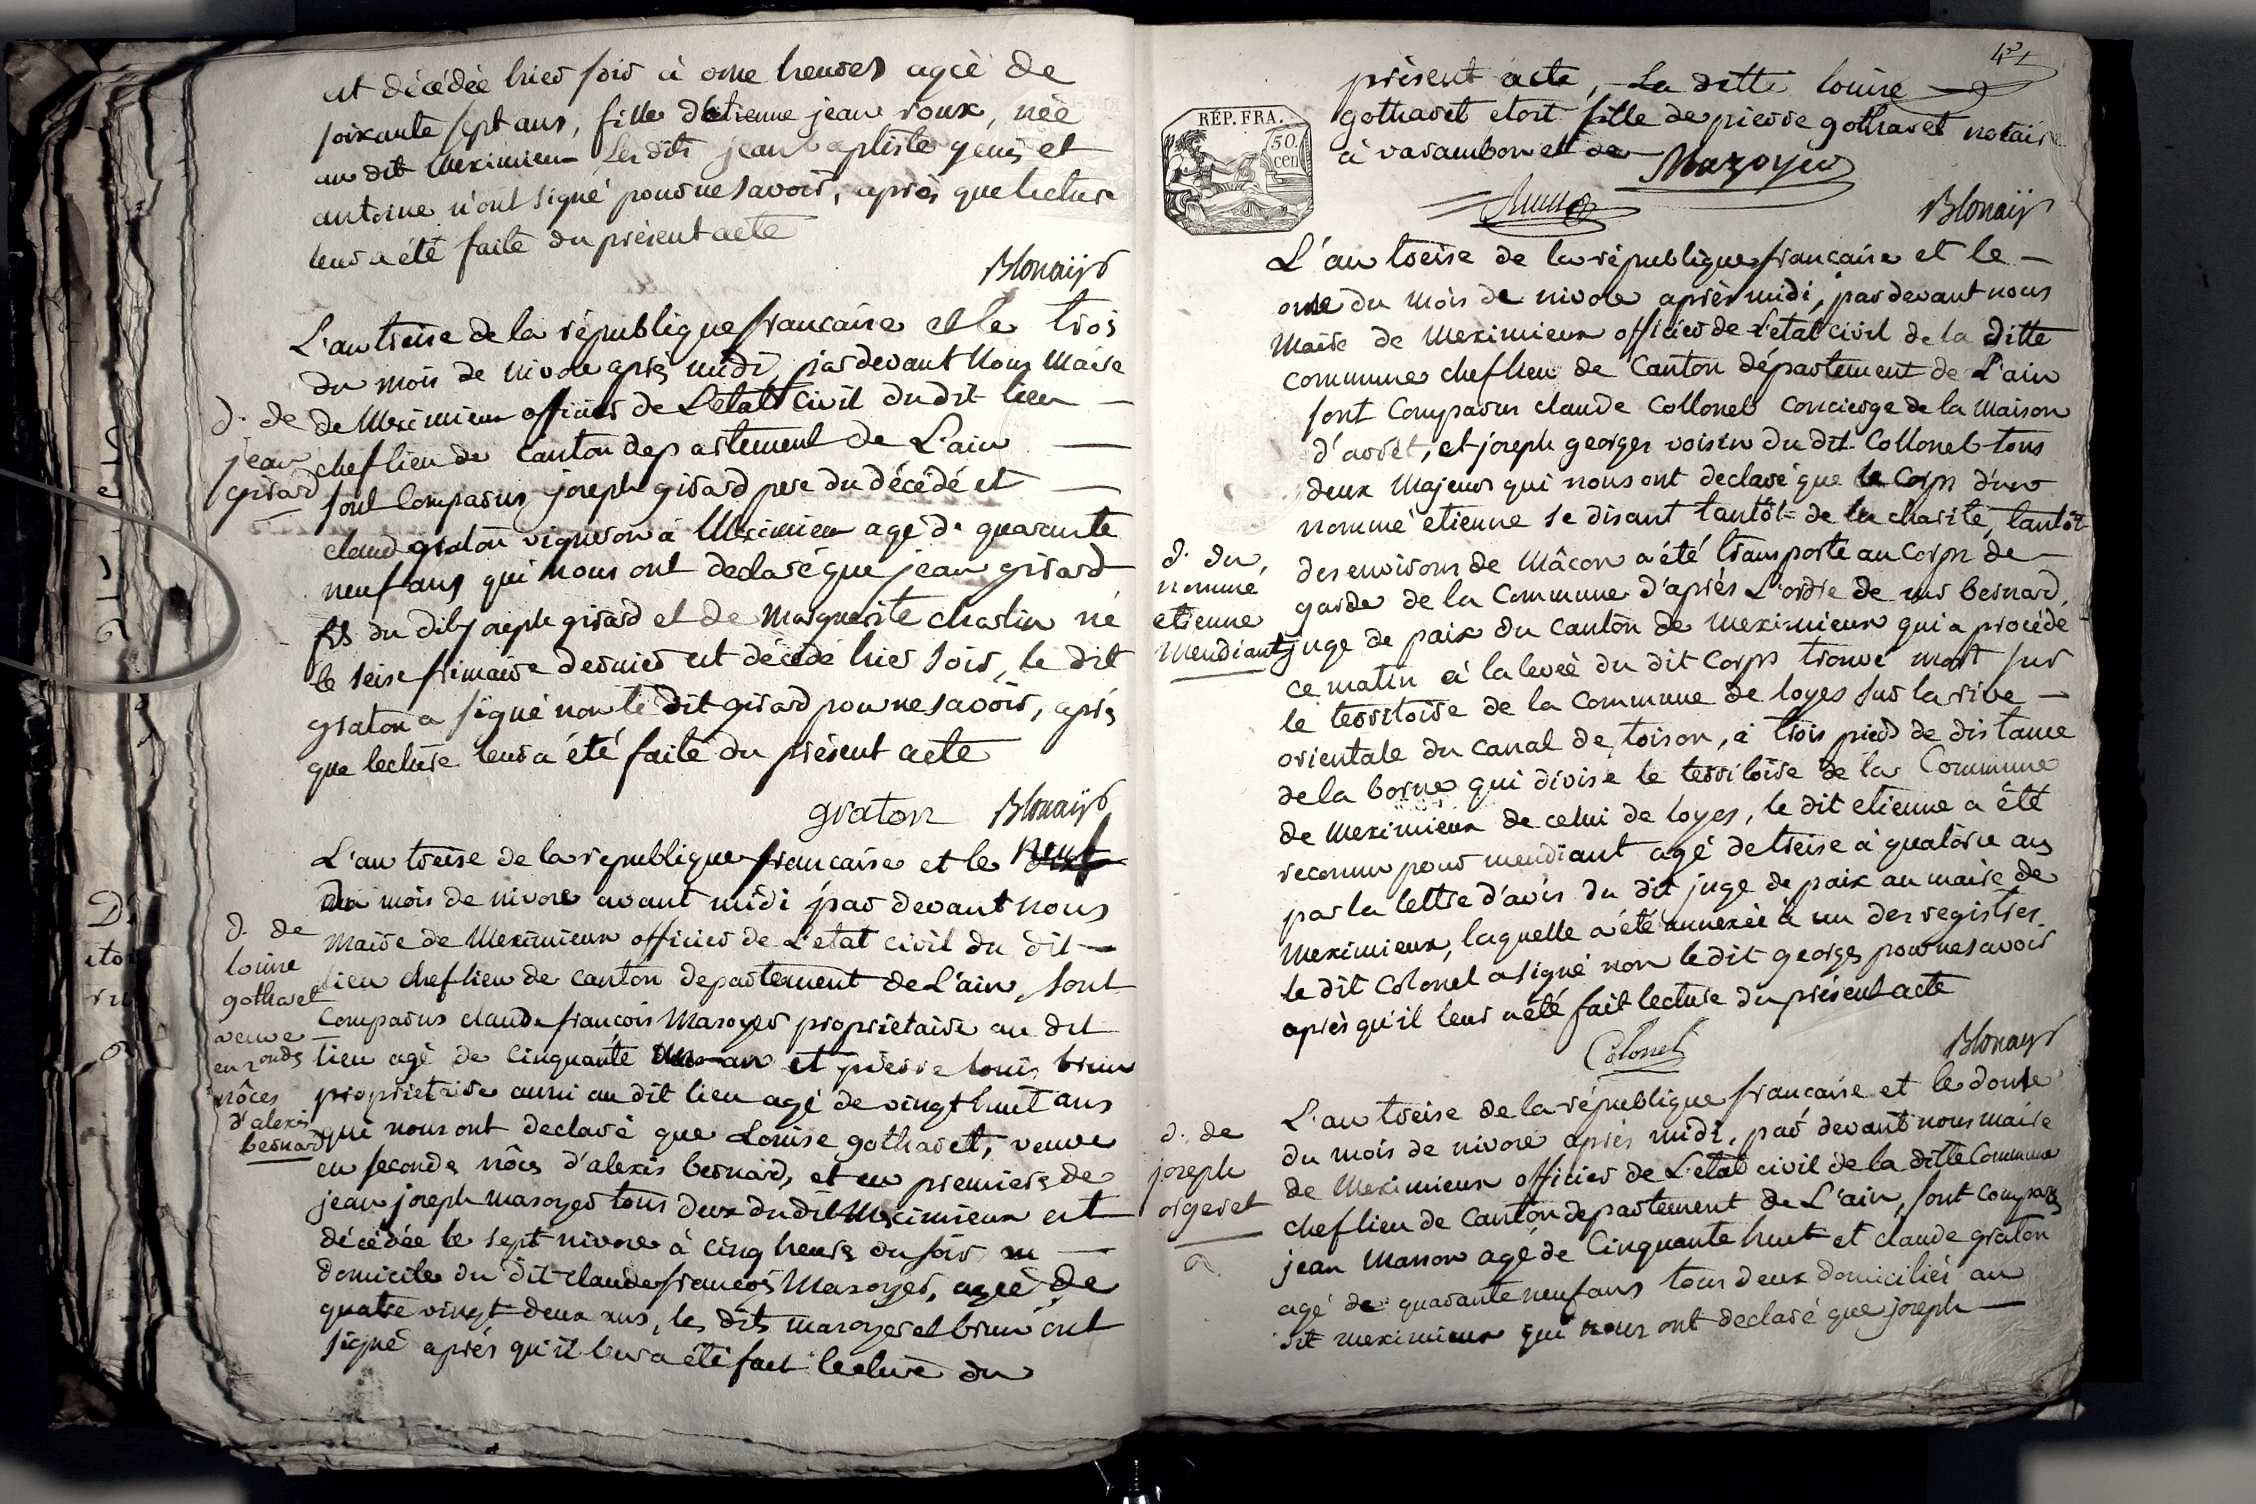 est décédée hier soir à onze heures agée de
soixante sept ans, fille d'etienne jean roux, née
au dit Meximieux Les dits jean baptiste genis et
antoine n'ont signé pour ne savoir, après que lecture
leur a été faite du présent acte
Blonay
L'an treise de la république francaise et le trois
du mois de nivose après midi par devant Nous Maire
de Meximieux officier de L'etat Civil du dit lieu
chef lieu de canton departement de L'ain
sont Comparus joseph girard pere du décédé et
claud graton vigneron à Meximieux agé de quarante
neuf ans qui nous ont declaré que jean girard
fils du dit joseph girard et de Marguerite charlin né
le seise frimaire dernier est décédé hier soir, le dit
graton a signé non le dit girard pour ne savoir, après
que lecture leur a été faite du présent acte
d. de
jean
girard
graton Blonay
L'an treise de la republique francaise et le neuf
du mois de nivose avant midi par devant nous
maire de Meximieux officier de L'etat civil du dit
lieu chef lieu de canton departement de L'ain, sont
Comparus claude francois Mazoyer proprietaire au dit
lieu agé de cinquante un an et pierre louis brun
proprietaire aussi au dit lieu agé de vingt huit ans
qui nous ont declaré que Louise gotharet, veuve
en secondes nôces d'alexis bernard, et en premiere de
jean joseph mazoyer tous deux du dit Meximieux est
décédée le sept nivose à cinq heures du soir au
domicile du dit claude francois Mazoyer, agée de
quatre vingt deux ans, les dits mazoyer et brun ont
signé après qu'il leur a été fait lecture du
d. de
louise
gotharet
veuve
en 2ondes
nôces
d'alexis
bernard
présent acte, La ditte louise
gotharet etoit fille de pierre gotharet notaire
à varambon et de
Mazoyer
Brun
Blonay
RÉP. FRA.
50
cen
L'an treise de la république francaise et le
onze du mois de nivose après midi, par devant nous
Maire de Meximieux officier de L'etat civil de la ditte
commune chef lieu de Canton département de L'ain
sont Comparus claude Collonel concierge de la Maison
d'arrêt, et joseph georges voisin du dit Collonel tous
deux Majeurs qui nous ont declaré que le Corps d'un
nommé etienne se disant tantôt de la charité, tantôt
des environs de Mâcon a été transporté au Corps de
garde de la Commune d'après L'ordre de mr bernard,
juge de paix du canton de meximieux qui a procédé
ce matin à la levée du dit Corps trouvé mort sur
le territoire de la commune de loyes sur la rive
orientale du canal de toison, à trois pieds de distance
de la borne qui divise le territoire de la Commune
de Meximieux de celui de loyes, le dit etienne a été
reconnu pour mendiant agé de treise à quatorse ans
par la lettre d'avis du dit juge de paix au maire de
Meximieux, laquelle a été annexée à un des registres
le dit Colonel a signé non le dit georges pour ne savoir
après qu'il leur a été fait lecture du présent acte
d. du
nommé
etienne
Mendiant
Colonel
Blonay
L'an treise de la république francaise et le douse
du mois de nivose après midi, par devant nous maire
de Meximieux officier de L'etat civil de la ditte Commune
chef lieu de canton departement de L'ain, sont comparus
jean Masson agé de Cinquante huit et claude graton
agé de quarante neuf ans tous deux domiciliés au
dit meximieux qui nous ont declaré que joseph
d. de
joseph
orgeret